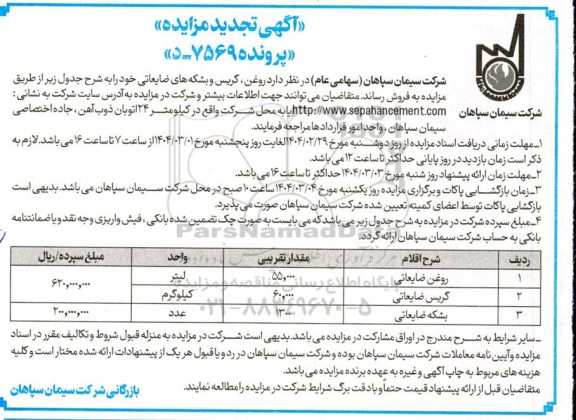 «آگهی تجدید مزایده»
«پرونده ۷۵۶۹-د»
شرکت سیمان سپاهان
شرکت سیمان سپاهان (سهامی عام) در نظر دارد روغن ، گریس و بشکه های ضایعاتی خود را به شرح جدول زیر از طریق
مزایده به فروش رساند. متقاضیان می توانند جهت اطلاعات بیشتر و شرکت در مزایده به آدرس سایت شرکت به نشانی :
http://www.sepahancement.com یا به محل شرکت واقع در کیلومتر ۲۴ اتوبان ذوب آهن ، جاده اختصاصی
سیمان سپاهان ، واحد امور قراردادها مراجعه فرمایند.
۱-مهلت زمانی دریافت اسناد مزایده از روز دوشنبه مورخ ۱۴۰۴/۰۲/۲۹ لغایت روز پنجشنبه مورخ ۱۴۰۴/۰۳/۰۱ از ساعت ۷ تا ساعت ۱۶ می باشد. لازم به
ذکر است زمان بازدید در روز پایانی حداکثر تا ساعت ۱۲ می باشد.
۲-مهلت زمان ارائه پیشنهاد روز شنبه مورخ ۱۴۰۴/۰۳/۰۳ حداکثر تا ساعت ۱۶ می باشد.
۳-زمان بازگشایی پاکات و برگزاری مزایده روز یکشنبه مورخ ۱۴۰۴/۰۳/۰۴ ساعت ۱۰ صبح در محل شرکت سیمان سپاهان می باشد. بدیهی است
بازگشایی پاکات توسط اعضای کمیته تعیین شده شرکت سیمان سپاهان صورت می پذیرد.
۴-مبلغ سپرده شرکت در مزایده به شرح جدول زیر می باشد که می بایست به صورت چک تضمین شده بانکی ، فیش واریزی وجه نقد و یا ضمانتنامه
بانکی به حساب شرکت سیمان سپاهان ارائه گردد.
ردیف شرح اقلام مقدار تقریبی واحد مبلغ سپرده/ریال
۱ روغن ضایعاتی ۵۵,۰۰۰ لیتر ۶۲۰,۰۰۰,۰۰۰
۲ گریس ضایعاتی ۶۰,۰۰۰ کیلوگرم
۳ بشکه ضایعاتی عدد ۲۰۰,۰۰۰,۰۰۰
-سایر شرایط به شرح مندرج در اوراق مشارکت در مزایده می باشد. بدیهی است شرکت در مزایده به منزله قبول شروط و تکالیف مقرر در اسناد
مزایده و آیین نامه معاملات شرکت سیمان سپاهان بوده و شرکت سیمان سپاهان در رد و یا قبول هر یک از پیشنهادات ارائه شده مختار است و کلیه
هزینه های مربوط به چاپ آگهی و غیره به عهده برنده مزایده می باشد.
متقاضیان قبل از ارائه پیشنهاد قیمت حتماً و با دقت برگ شرایط شرکت در مزایده را مطالعه نمایند.
بازرگانی شرکت سیمان سپاهان
ParsNamadData
۰۲۱-۸۸۳۴۹۶۷۰-۵